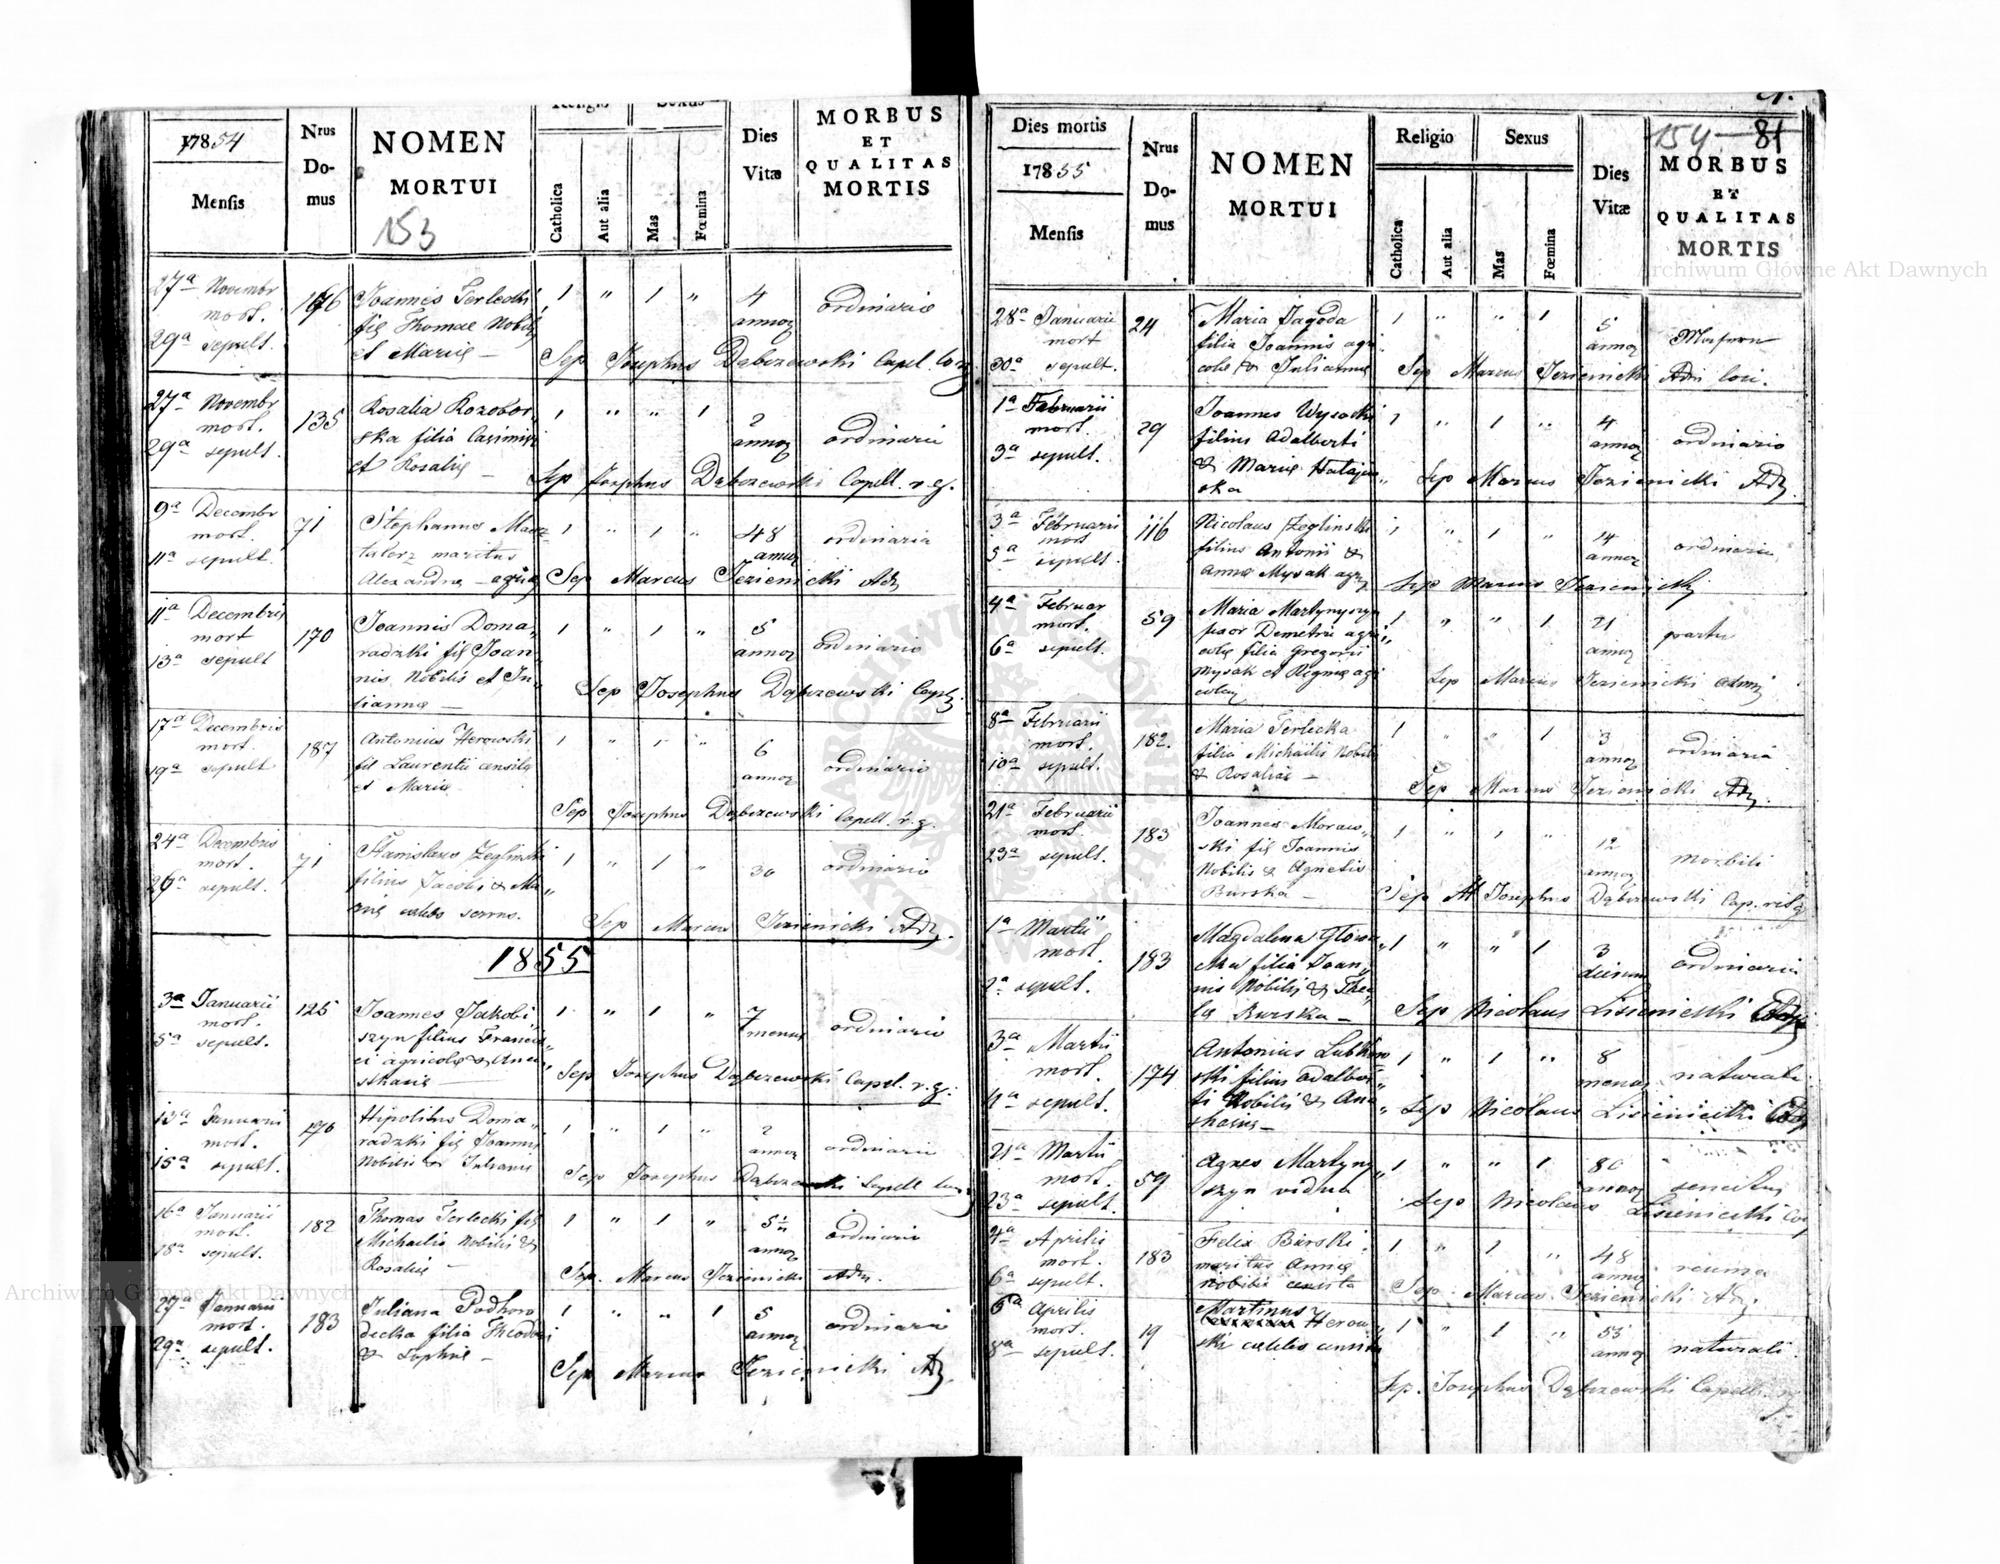 1854
Mensis
Nrus
Do-
mus
NOMEN
MORTUI
153
Religio
Sexus
Catholica
Aut alia
Mas
Fœmina
Dies
Vitæ
MORBUS
ET
QUALITAS
MORTIS
27a Novembr
mort.
29a sepult.
Joannes Terlecki
fil Thomae Nobilis
et Mariæ —
1 " 1 "
4
annor
ordinaria
Sep Josephus Dąbczewski Capel.
27a Novembr
mort.
29a sepult.
135
Rosalia Rozobor„
ska filia Casimiri
et Rosaliæ —
1 " " 1
2
annor
ordinaria
Sep Josephus Dąbczewski Capell. r. g.
9a Decembr
mort.
11a sepult.
71
Stephanus
maritus
Alexandræ
1 " 1 "
48
annor
ordinaria
Sep Marcus Jezienicki Adm
11a Decembris
mort
13a sepult
170
Joannes Doma„
radzki fil Joan„
nis Nobilis et Ju„
lianna —
1 " 1 "
5
annor
ordinaria
Sep Josephus Dąbczewski Capel.
17a Decembris
mort.
19a sepult
187
Antonius Herowski
fil Laurentii
et Mariæ
1 " 1 "
6
annor
ordinaria
Sep Josephus Dąbczewski Capell. r. g.
24a Decembris
mort.
26a sepult.
71
Stanislaus Zegliński
filius Jacobi & Ma„
riæ
1 " 1 "
30
ordinaria
Sep Marcus Jezienicki Adm.
1855
3a Januarii
mort.
5a sepult.
125
Joannes Jakobi„
szyn filius Francis„
ci agricolæ & Anas„
thasiæ
1 " 1 "
7
menses
ordinaria
Sep Josephus Dąbczewski Capel. r. g.
13a Januarii
mort.
15a sepult.
170
Hipolitus Doma„
radzki fil Joannis
Nobilis & Julianæ
1 " 1 "
2
annor
ordinaria
Sep Josephus Dąbczewski Capell
16a Januarii
mort.
18a sepult.
182
Thomas Terlecki fil
Michaelis Nobilis &
Rosaliæ —
1 " 1 "
annor
ordinaria
Sep. Marcus Jezienicki Adm.
27a Januarii
mort.
29a sepult.
183
Juliana Podhoro
decka filia Theodori
& Sophiæ —
1 " " 1
5
annor
ordinaria
Sep Marcus Jezienicki Adm
Dies mortis
1855
Mensis
Nrus
Do-
mus
NOMEN
MORTUI
Religio
Sexus
Catholica
Aut alia
Mas
Fœmina
Dies
Vitæ
154 81
MORBUS
ET
QUALITAS
MORTIS
28a Januarii
mort
30a sepult.
24
Maria Jagoda
filia Joannis agri„
colæ & Julianna
1 " " 1
5
annor
Sep Marcus Jezienicki
1a Februarii
mort.
3a sepult.
29
Joannes Wysocki
filius Adalberti
& Mariæ
ska
1 " 1 "
4
annor
ordinaria
Sep Marcus Jezienicki Adm.
3a Februarii
mort
5a sepult.
116
Nicolaus Zeglinski
filius Antonii &
Annæ Mysak
1 " 1 "
14
annor
ordinaria
Sep Marcus Jezienicki
4a Februar
mort.
6a sepult.
59
Maria Martynyszyn
uxor Demetrii agri„
colæ filia Gregorii
Mysak et Reginæ agri
1 " " 1
21
annor
partu
Sep Marcus Jezienicki Adm
8a Februarii
mort.
10a sepult.
182.
Maria Terlecka
filia Michaelis Nobilis
& Rosaliæ —
1 " " 1
3
annor
ordinaria
Sep Marcus Jezienicki Adm.
21a Februarii
mort.
23a sepult.
183
Joannes Moraw„
ski fil Joannis
Nobilis & Agnetis
Burska —
1 " 1 "
12
annor
morbili
Sep Josephus Dąbczewski Cap.
1a Martii
mort.
2a sepult.
183
Magdalena
filia Joan„
nis Nobilis & The„
Burska —
1 " " 1
3
dierum
ordinaria
Sep Nicolaus Lisieniecki
3a Martii
mort.
4a sepult.
174
Antonius
ski filius Adalber„
ti Nobilis & Ana„
1 " 1 "
8
mensi
naturali
Sep Nicolaus Lisieniecki
21a Martii
mort.
23a sepult.
59
Agnes Martyny„
szyn vidua
1 " " 1
80
annor
Sep Nicolaus Lisieniecki
4a Aprilis
mort.
6a sepult.
183
Felix Burski
maritus Annæ
Nobilis
1 " 1 "
48
annor
Sep. Marcus Jezienicki Adm.
6a Aprilis
mort.
8a sepult.
19
Martinus
Herow„
ski
1 " 1 "
53
annor
naturali.
Sep. Josephus Dąbczewski Capell.
Archiwum Główne Akt Dawnych
Archiwum Główne Akt Dawnych
ARCHIWUM GŁÓWNE AKT DAWNYCH